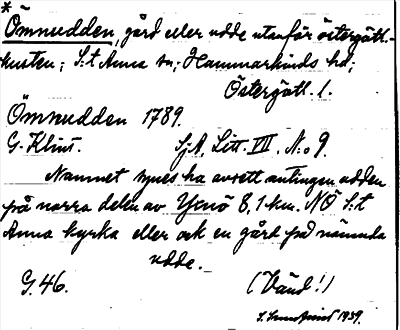 *
Ömnudden, gård eller udde utanför östergötl.-
kusten; S:t Anna sn; Hammarkinds hd;
Östergötl. l.
Ömnudden 1789.
G. Klint. SjA, Litt. VII. N:o 9.
Namnet synes ha avsett antingen udden
på norra delen av Yxnö 8,1 km. NÖ S:t
Anna kyrka eller ock en gård på nämnda
udde.
G. 46. (Vänd!)
1939.